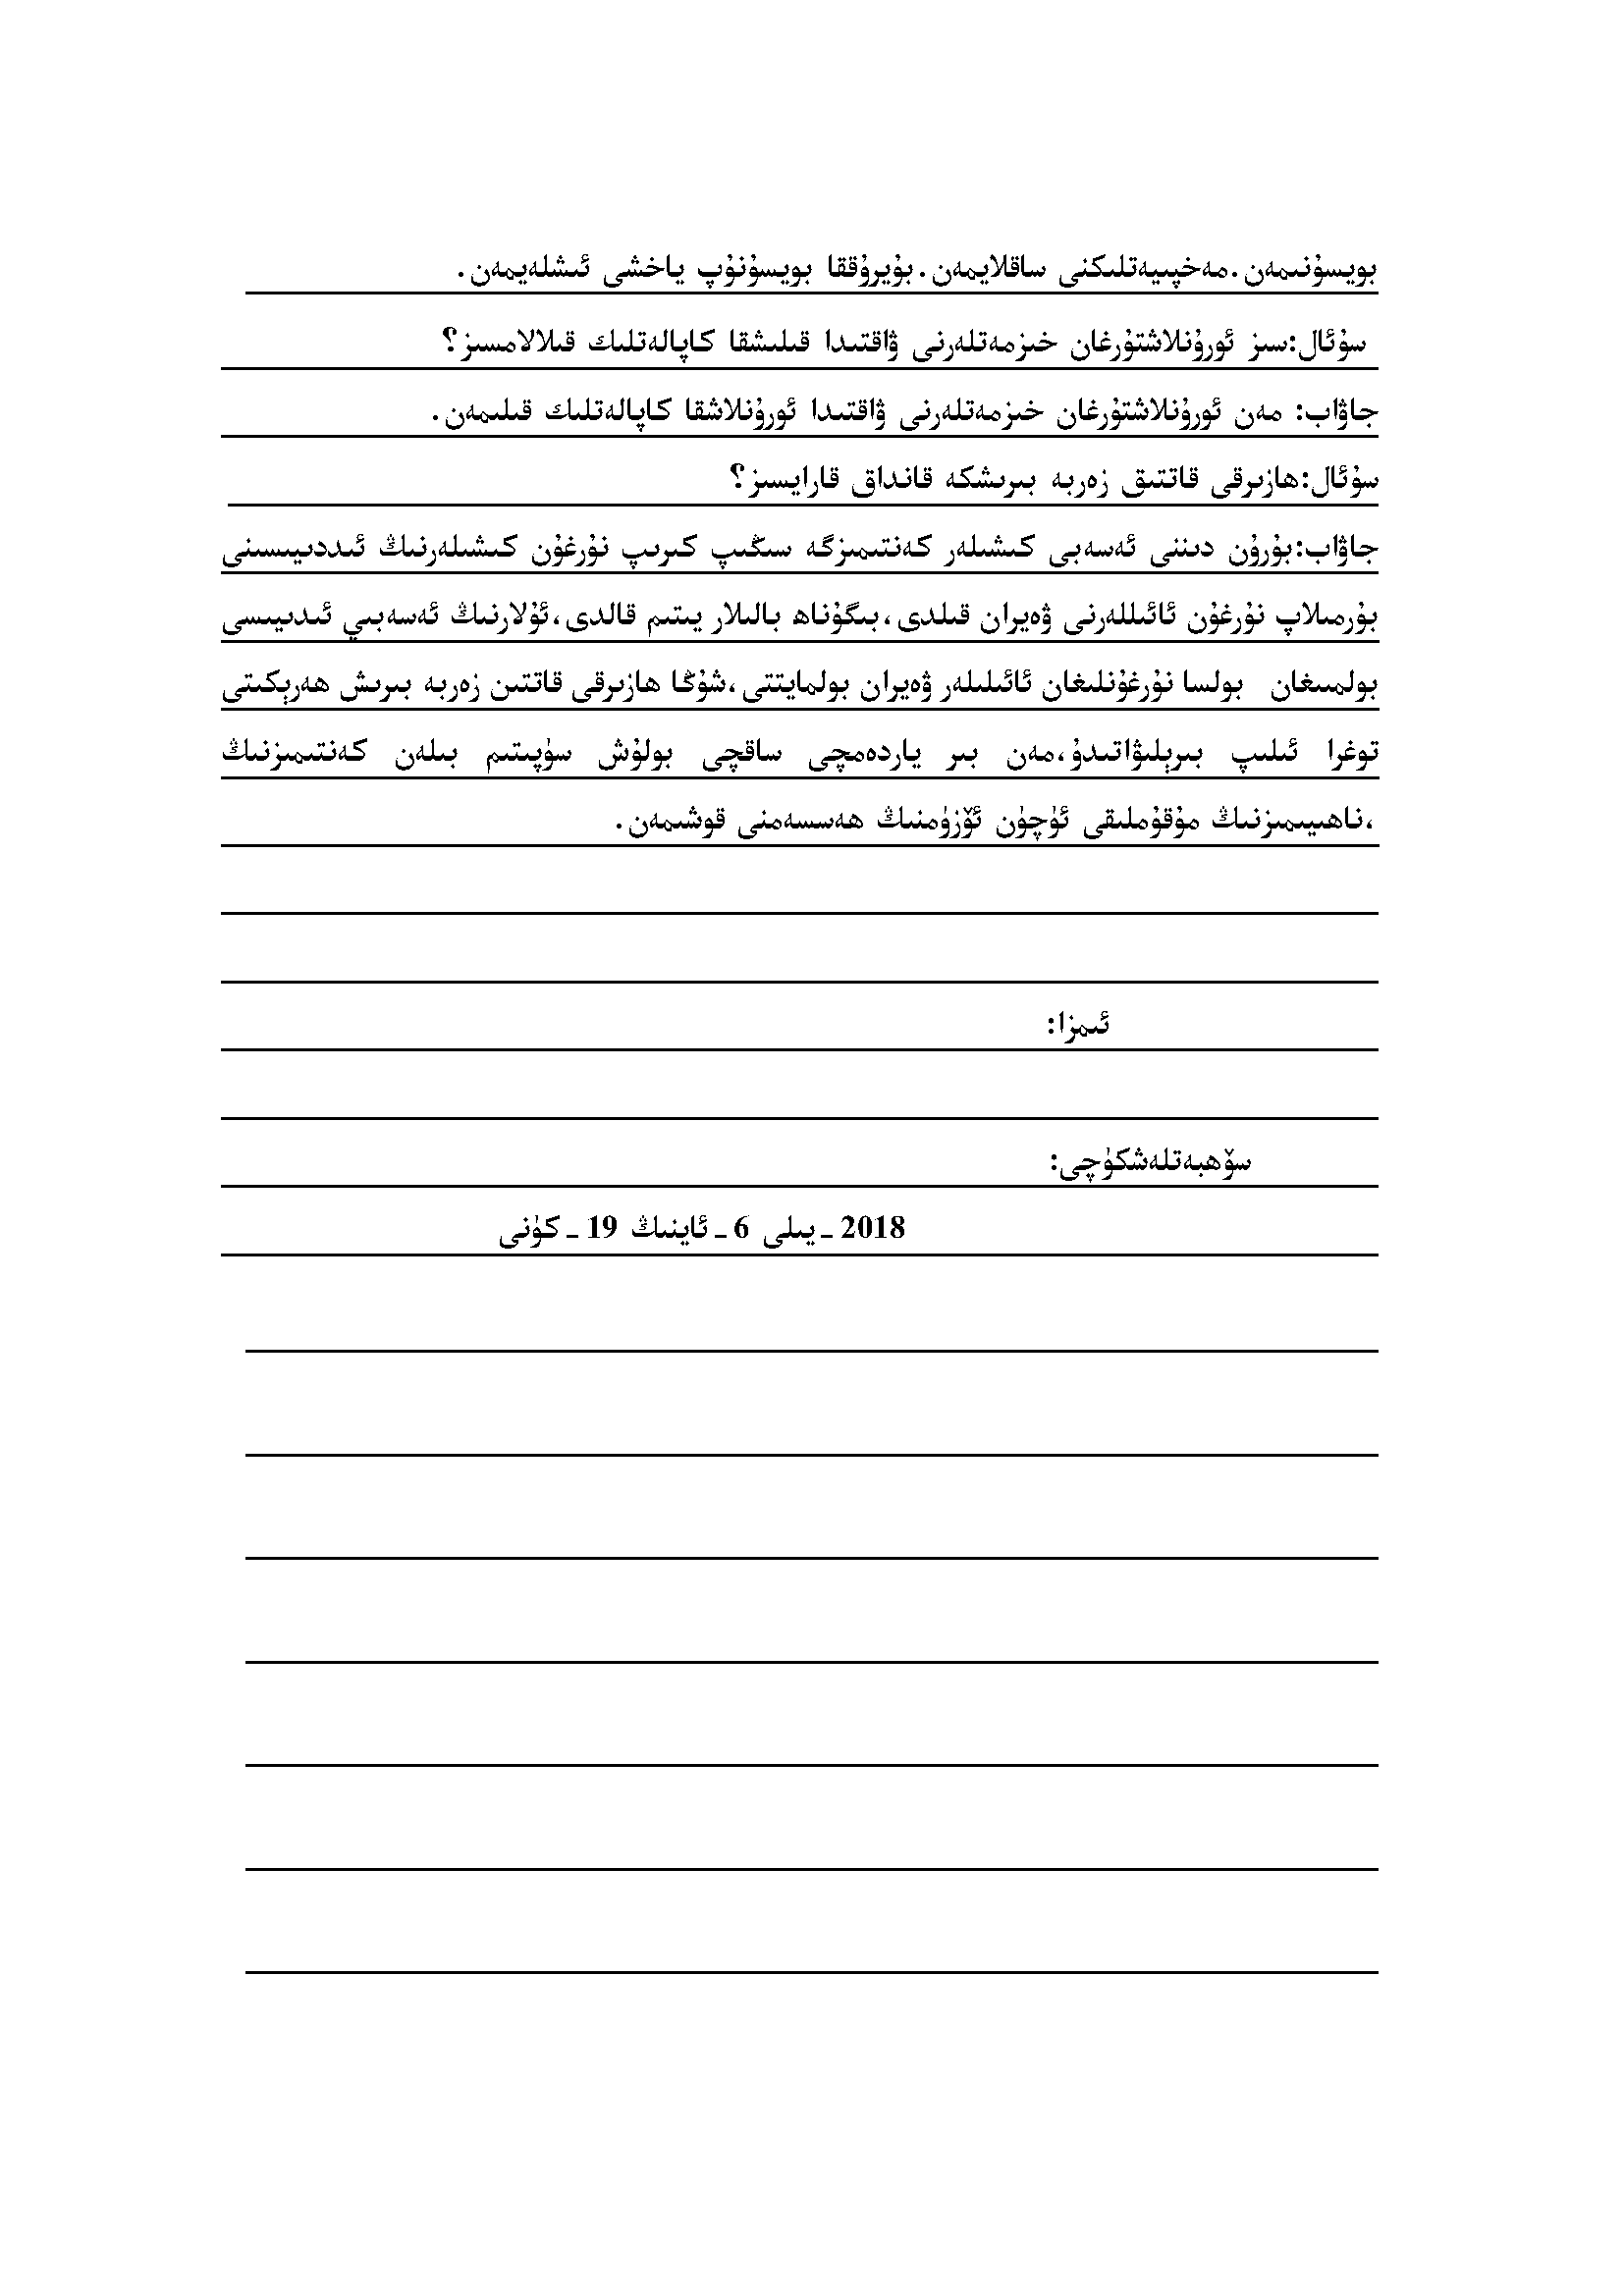 بويسۇنىمەن.مەخپىيەتلىكنى ساقلايمەن.بۇيرۇققا بويسۇنۇپ ياخشى ئىشلەيمەن.
سۇئال:سىز ئورۇنلاشتۇرغان خىزمەتلەرنى ۋاقتىدا قىلىشقا كاپالەتلىك قىلالامسىز؟
جاۋاب: مەن ئورۇنلاشتۇرغان خىزمەتلەرنى ۋاقتىدا ئورۇنلاشقا كاپالەتلىك قىلىمەن.
سۇئال:ھازىرقى قاتتىق زەربە بىرىشكە قانداق قارايسىز؟
جاۋاب:بۇرۇن دىننى ئەسەبى كىشىلەر كەنتىمىزگە سىڭىپ كىرىپ نۇرغۇن كىشىلەرنىڭ ئىددىيىسىنى
بۇرمىلاپ نۇرغۇن ئائىللەرنى ۋەيران قىلدى،بىگۇناھ بالىلار يىتىم قالدى،ئۇلارنىڭ ئەسەبىي ئىدىيىسى
بولمىغان بولسا نۇرغۇنلىغان ئائىلىلەر ۋەيران بولمايتتى،شۇڭا ھازىرقى قاتتىن زەربە بىرىش ھەرېكىتى
توغرا ئىلىپ بىرېلىۋاتىدۇ،مەن بىر ياردەمچى ساقچى بولۇش سۈپىتىم بىلەن كەنتىمىزنىڭ
،ناھىيىمىزنىڭ مۇقۇملىقى ئۈچۈن ئۆزۈمنىڭ ھەسسەمنى قوشىمەن.
ئىمزا:
سۆھبەتلەشكۈچى:
2018 ـ يىلى 6 ـ ئاينىڭ 19 ـ كۈنى